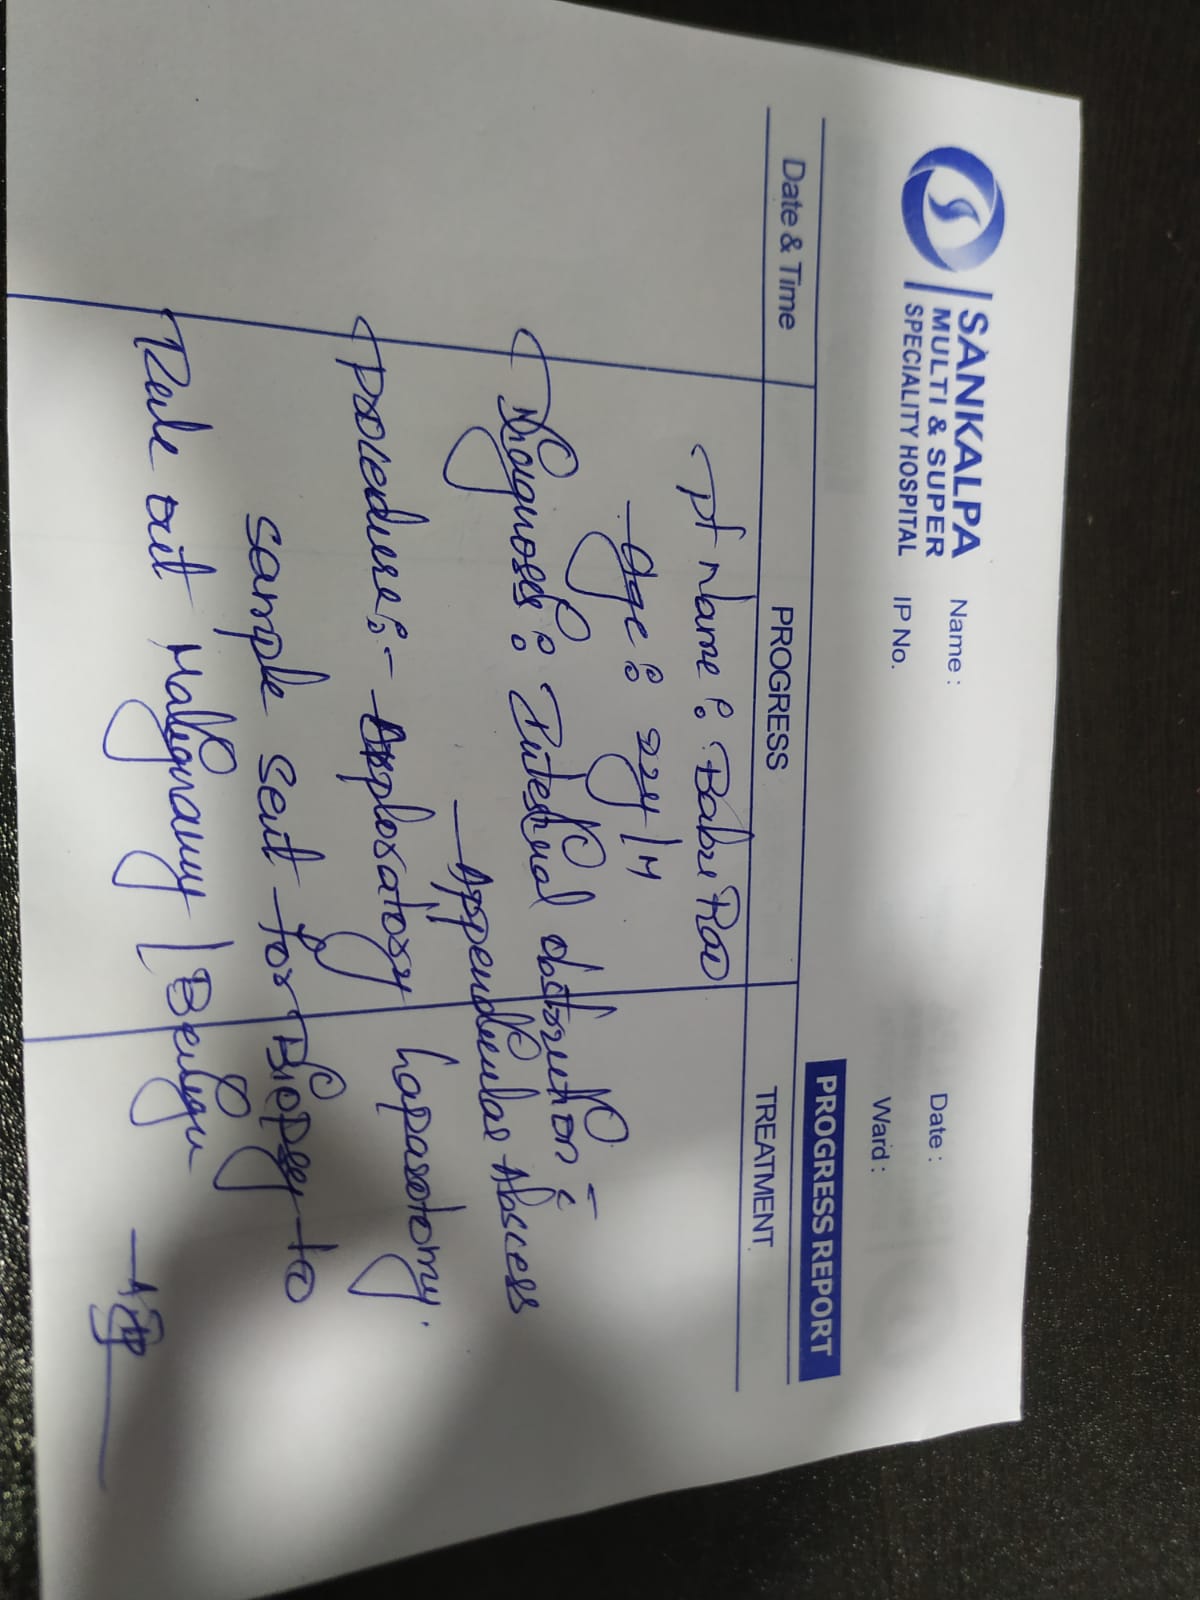 SANKALPA
MULTI & SUPER
SPECIALITY HOSPITAL
Name :
IP No.
Date :
Ward :
PROGRESS REPORT
Date & Time PROGRESS TREATMENT
pt Name :. Babu Rao
Age : 22y/M
Diagnosis : Intestinal obstruction c̄
Appendicular Abscess
procedure :- Exploratory laparotomy.
sample sent for Biopsy to
Rule out Malignancy / Benign